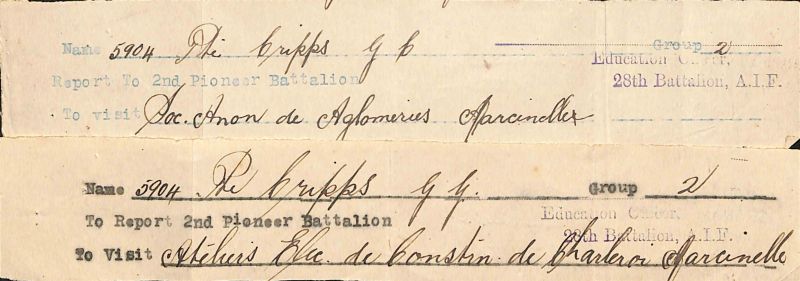 Name 5904 Pte Cripps G C Group 2
Education Officer,
Report To 2nd Pioneer Battalion 28th Battalion, A.I.F.
To visit Soc. Anon de Aglomeries Marcinelles
Name 5904 Pte Cripps G G. Group 2
To Report 2nd Pioneer Battalion Education Officer,
28th Battalion, A.I.F.
To Visit Ateliers Elec. de Constin. de Charleroi Marcinelle